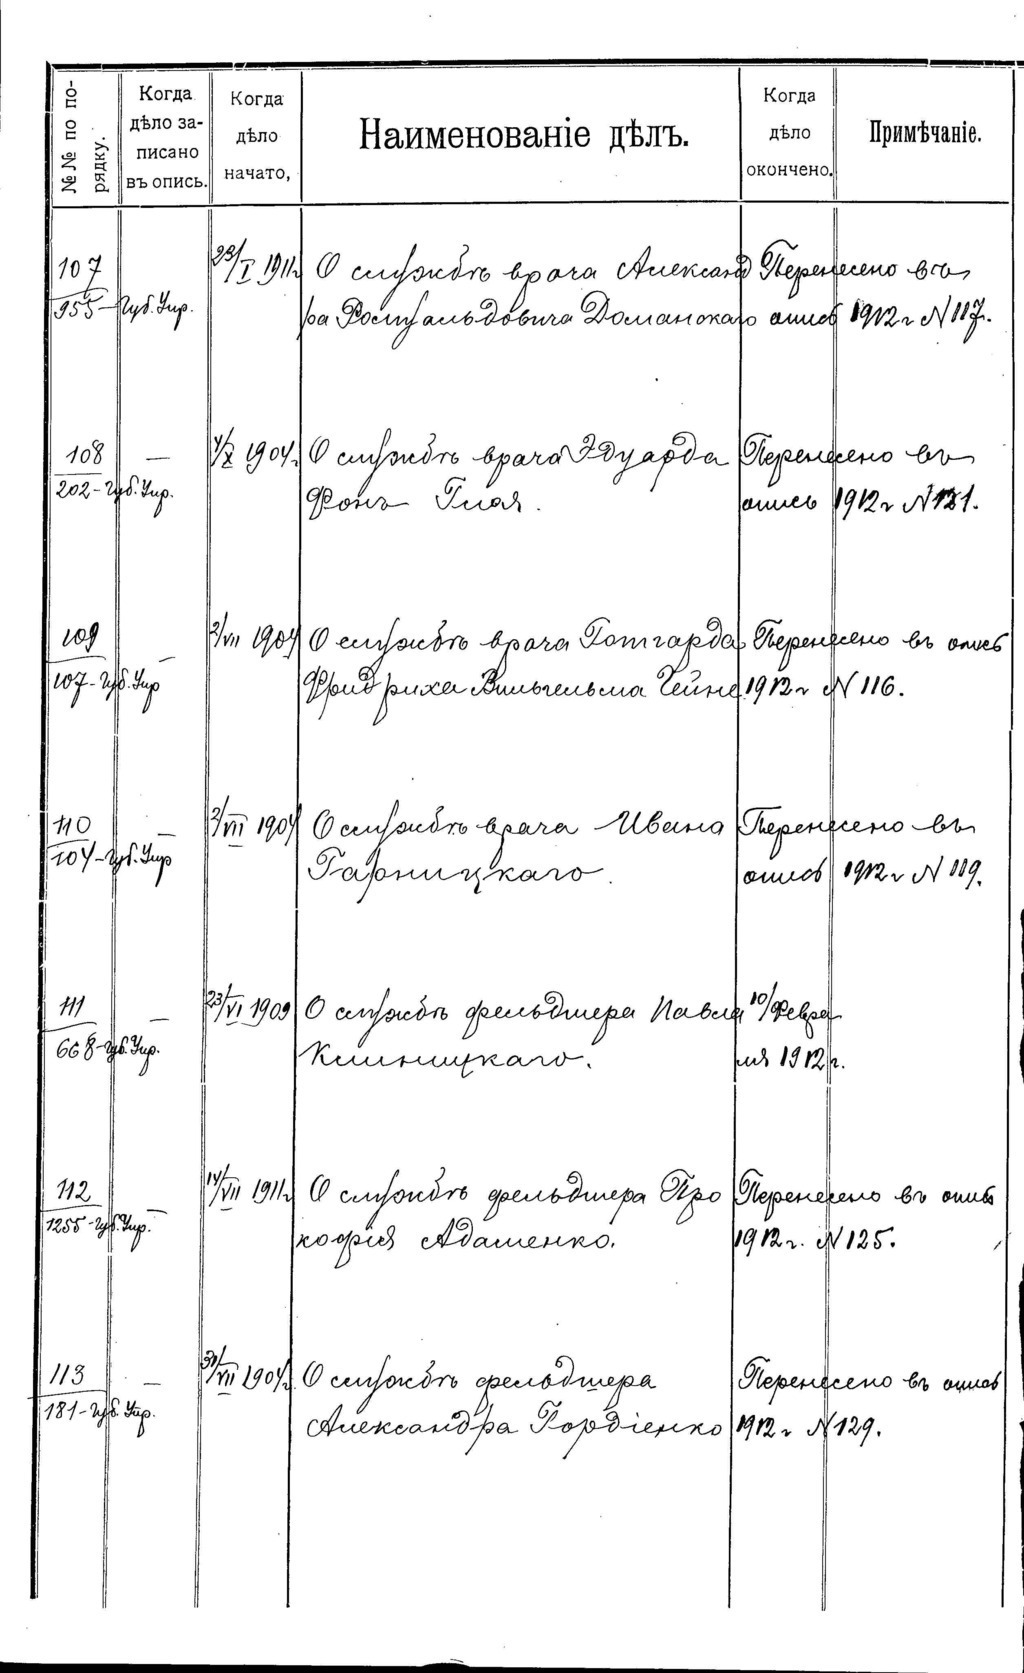 №№ по по-
рядку.
Когда
дѣло за-
писано
въ опись.
Когда
дѣло
начато,
Наименованіе дѣлъ.
Когда
дѣло
окончено.
Примѣчаніе.
107 I 1911г О службѣ врача Александ Перенесено въ
955 - Губ. Упр. ра Ромуальдовича Доманскаго опись 1912 г N 117.
108 — 4/X 1904г. О службѣ врача Эдуарда Перенесено въ
202 - Губ. Упр. фонъ Гмая. опись 1912 г N 121.
109 — 2/VII 1904 О службѣ врача Готгарда Перенесено въ опись
107 - Губ. Упр Фридриха Вильгельма Гейне 1912 г N 116.
110 — 2/VII 1904 О службѣ врача Ивана Перенесено въ
104 - Губ. Упр Гарницкаго. опись 1912 г N 119.
111 — 23/VI 1909 О службѣ фельдшера Павла 10/Февра
668 - Губ. Упр. Климицкаго. ля 1912 г.
112 — 14/VII 1911г О службѣ фельдшера Про Перенесено въ опись
1255 - Губ. Упр. кофія Адаменко. 1912 г. N 125.
113 — VII 1904г. О службѣ фельдшера Перенесено въ опись
181 - Губ. Упр. Александра Гордіенко 1912 г N 129.